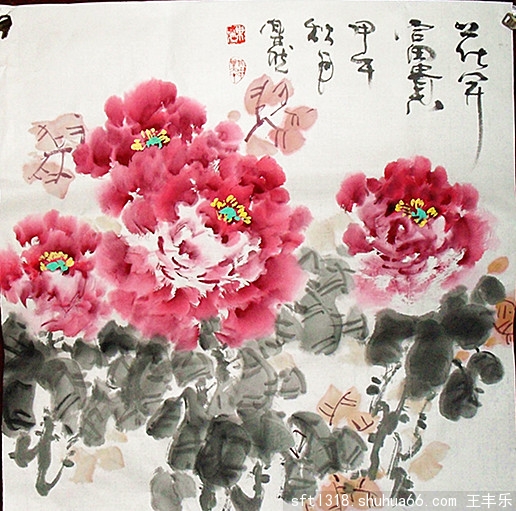 花开
富贵
甲午
秋月
sftl318.shuhua66.com 王丰乐